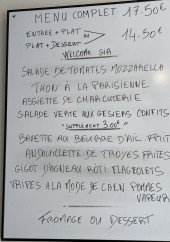 MENU COMPLET 17.50€
ENTREE + PLAT
OU
PLAT + DESSERT
14.50€
WELCOME SIR
SALADE DE TOMATES MOZZARELLA
THON À LA PARISIENNE
ASSIETTE DE CHARCUTERIE
SALADE VERTE AUX GESIERS CONFITS
"SUPPLEMENT 3.00€"
BAVETTE AU BEURRE D'AIL FRITES
ANDOUILLETTE DE TROYES FRITES
GIGOT D'AGNEAU ROTI FLAGEOLETS
TRIPES A LA MODE DE CAEN POMMES
VAPEUR
FROMAGE OU DESSERT